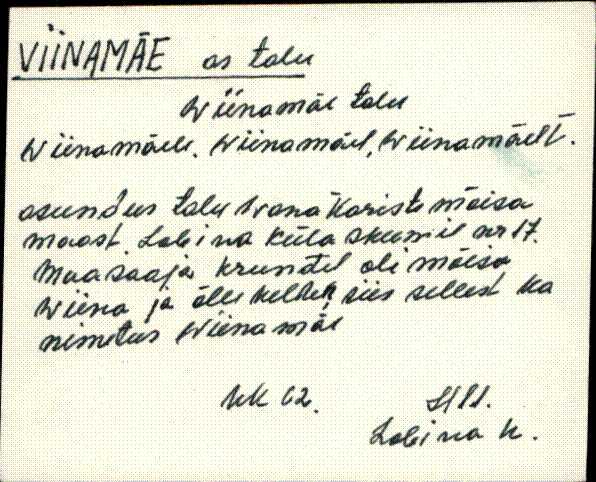 VIINAMÄE as talu
Wiinamäe talu
Wiinamäele, Wiinamäel, Wiinamäelt.
asundus talu Wana Kariste mõisa
maast. Lobina küla skeemil nr 17.
Maasaaja krundil oli mõisa
Wiina ja õlle kelder, siis sellest ka
nimetus Wiinamäe
Lobina k.